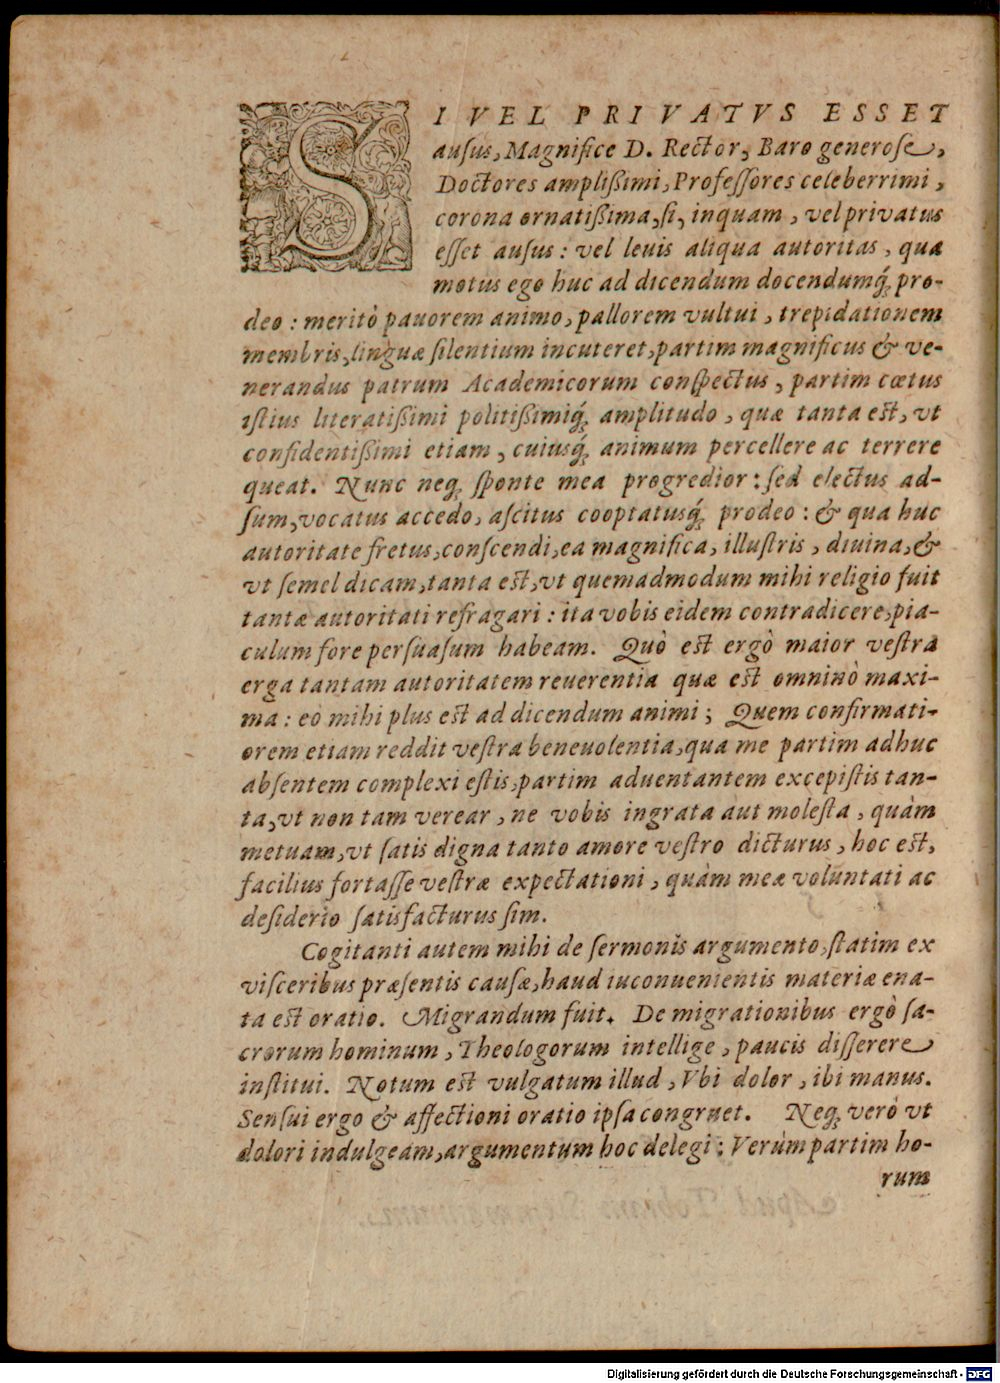 SI VEL PRIVATVS ESSET
auſus, Magnifice D. Rector, Baro generoſe,
Doctores ampliſſimi, Profeſſores celeberrimi,
corona ornatiſſima, ſi, inquam, vel privatus
eſſet auſus: vel leuis aliqua autoritas, qua
motus ego huc ad dicendum docendumq́ꝫ pro-
deo: meritò pauorem animo, pallorem vultui, trepidationem
membris, linguæ ſilentium incuteret, partim magnificus & ve-
nerandus patrum Academicorum conſpectus, partim cœtus
iſtius literatiſſimi politiſſimiq́ꝫ amplitudo, quæ tanta eſt, vt
confidentiſſimi etiam, cuiusq́ꝫ animum percellere ac terrere
queat. Nunc neqꝫ ſponte mea progredior: ſed electus ad-
ſum, vocatus accedo, aſcitus cooptatusq́ꝫ prodeo: & qua huc
autoritate fretus, conſcendi, ea magnifica, illuſtris, diuina, &
vt ſemel dicam, tanta eſt, vt quemadmodum mihi religio fuit
tantæ autoritati refragari: ita vobis eidem contradicere, pia-
culum fore perſuaſum habeam. Quò eſt ergò maior veſtra
erga tantam autoritatem reuerentia quæ eſt omninò maxi-
ma: eò mihi plus eſt ad dicendum animi; Quem confirmati-
orem etiam reddit veſtra beneuolentia, qua me partim adhuc
abſentem complexi eſtis, partim aduentantem excepiſtis tan-
ta, vt non tam verear, ne vobis ingrata aut moleſta, quàm
metuam, vt ſatis digna tanto amore veſtro dicturus, hoc eſt,
facilius fortaſſe veſtræ expectationi, quàm meæ voluntati ac
deſiderio ſatisfacturus ſim.
Cogitanti autem mihi de ſermonis argumento, ſtatim ex
viſceribus præſentis cauſæ, haud iuconuenientis materiæ ena-
ta eſt oratio. Migrandum fuit. De migrationibus ergò ſa-
crorum hominum, Theologorum intellige, paucis diſſerere
inſtitui. Notum eſt vulgatum illud, Vbi dolor, ibi manus.
Senſui ergo & affectioni oratio ipſa congruet. Neqꝫ verò vt
dolori indulgeam, argumentum hoc delegi: Verùm partim ho-
rum
Digitalisierung gefördert durch die Deutsche Forschungsgemeinschaft - DFG